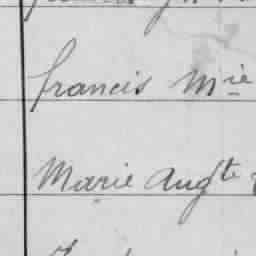 francis Mie
Marie Augte